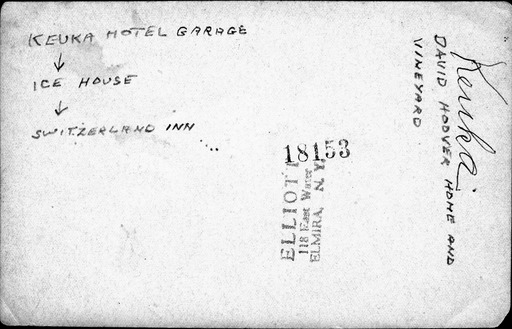 KEUKA HOTEL GARAGE
↓
ICE HOUSE
↓
SWITZERLAND INN
18153
ELLIOTT
118 East Water
ELMIRA, N. Y.
Keuka
DAVID HOOVER HOME AND
VINEYARD